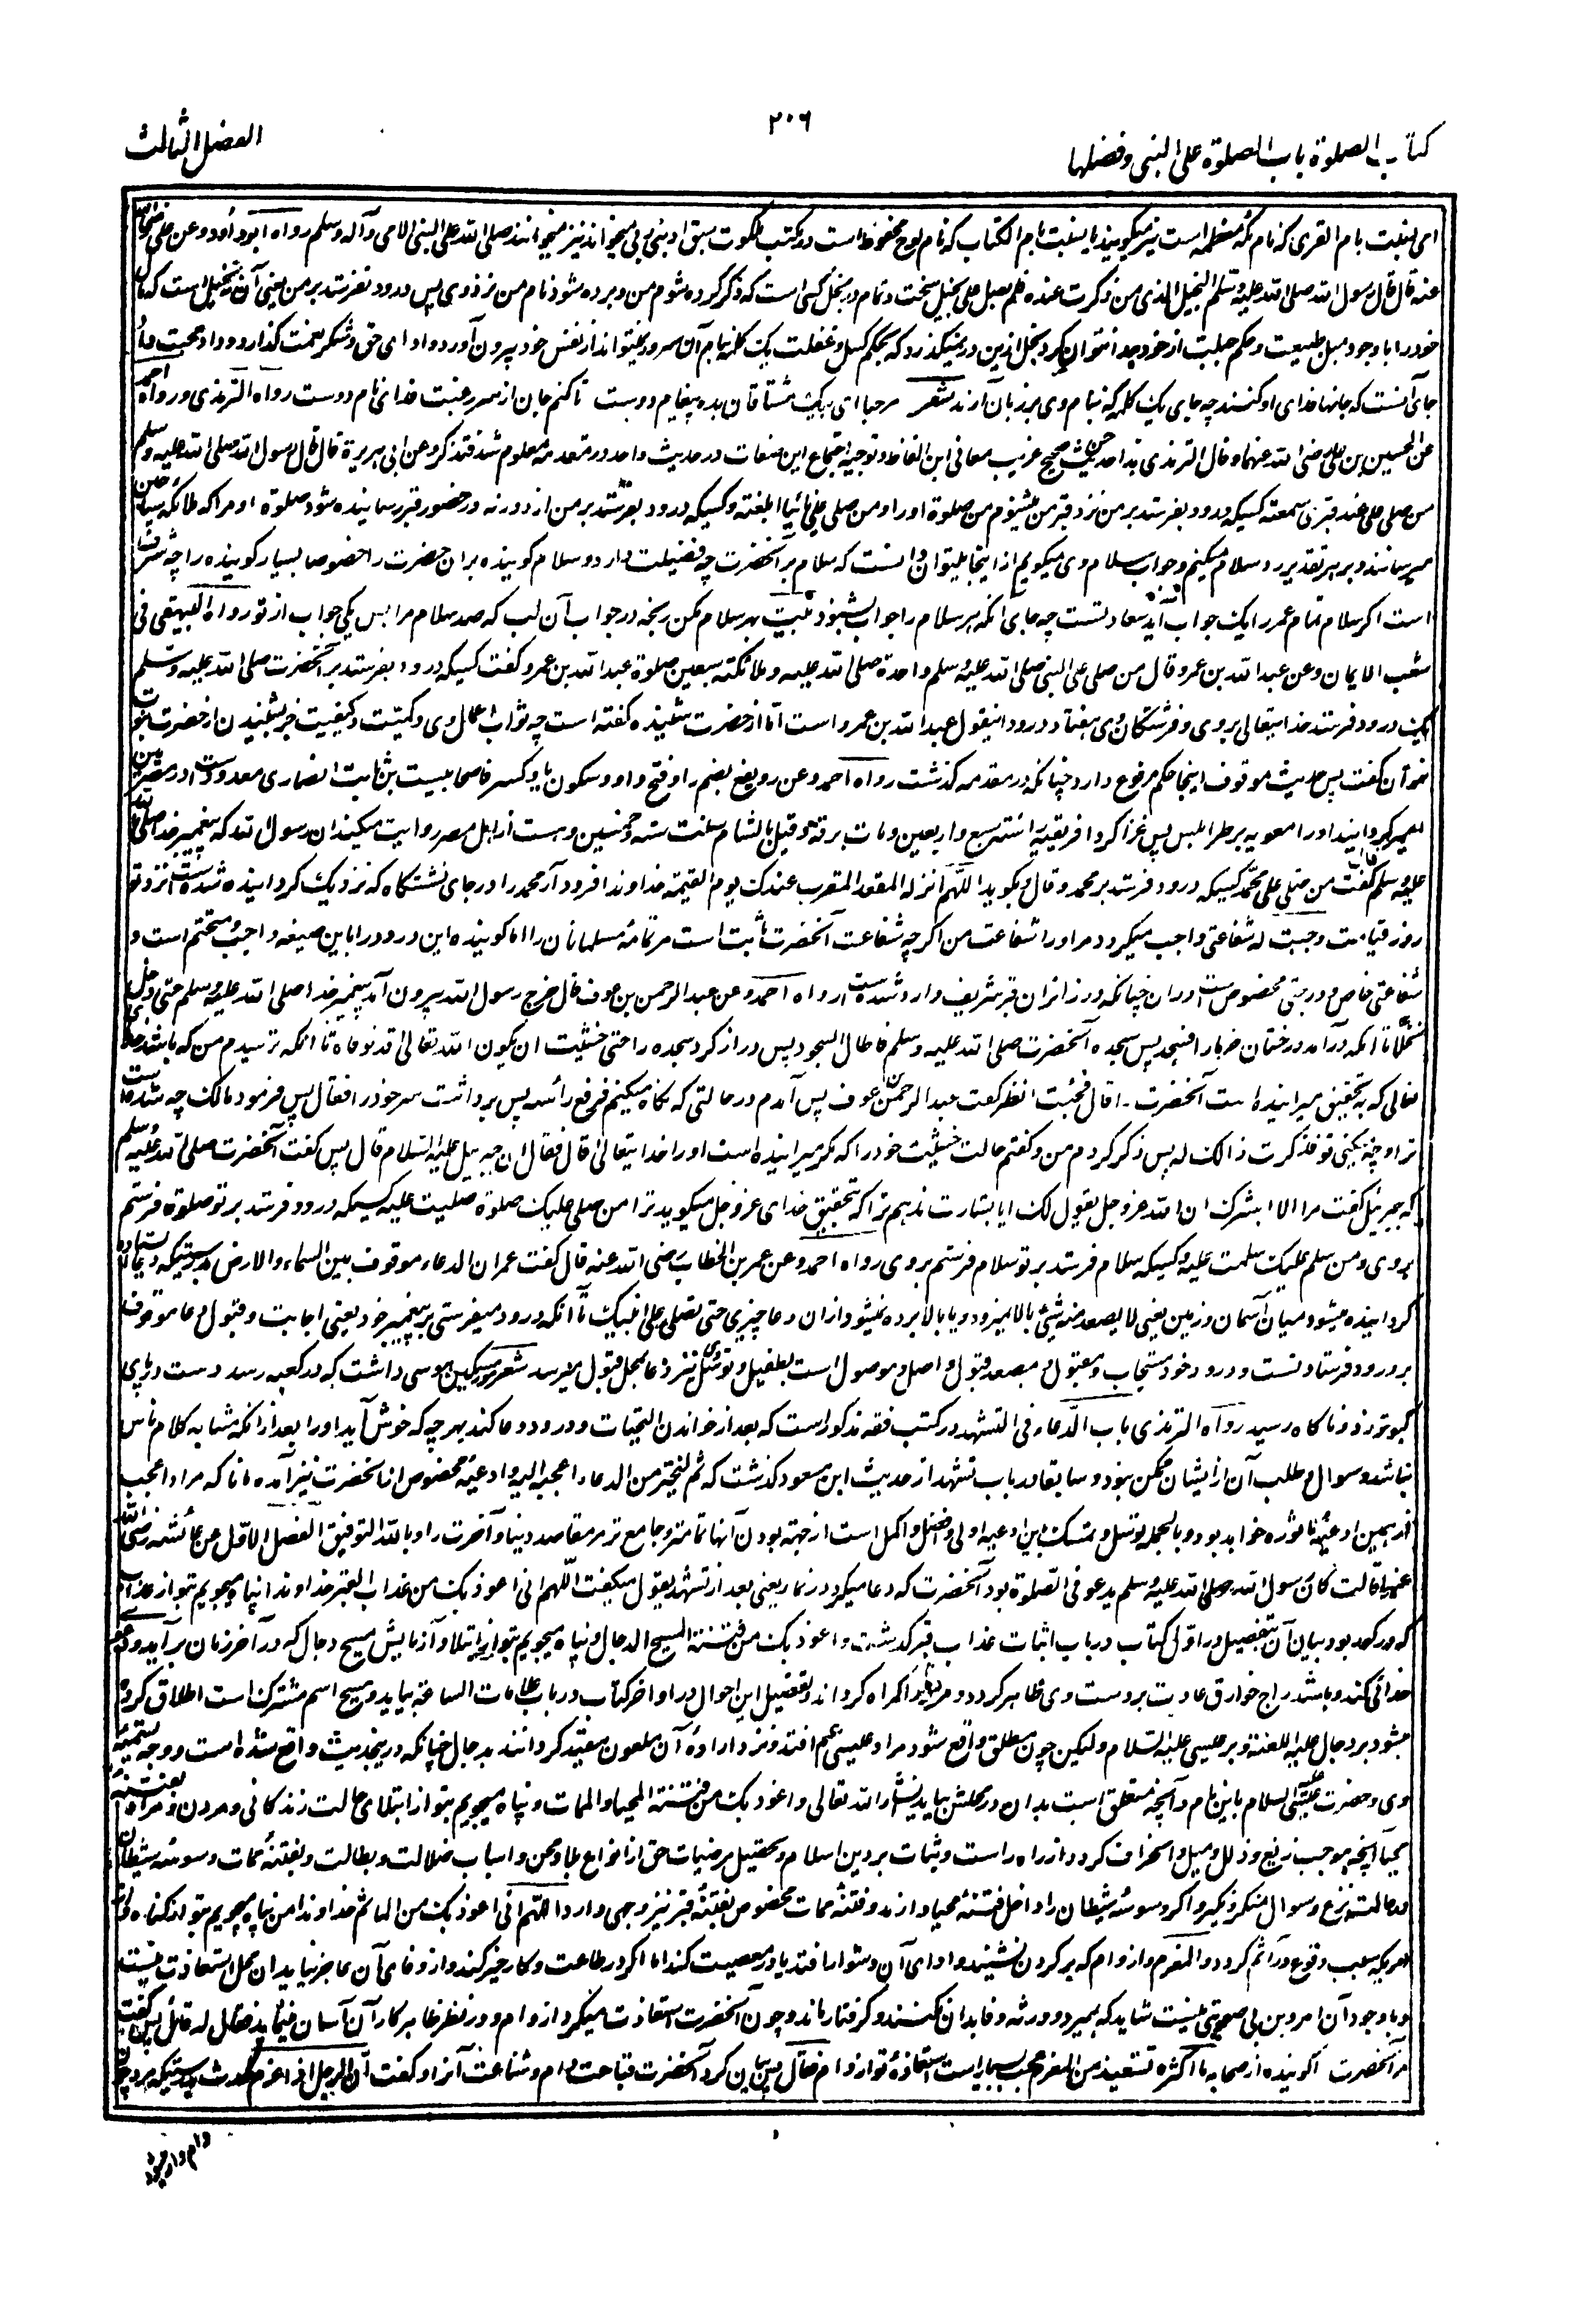 کتاب الصلوة باب الصلوة علی النبی وفضلها
۲۰۶
الفصل الثالث
امی نسبت بام القری که نام مکه معظمه است نیز میگویند یا نسبت بام الکتاب که نام لوح محفوظ است در مکتب ملکوت سبق او نبی بی میخوانند صلی الله علی النبی الامی وآله وسلم رواه ابوداؤد وعن علی رضی الله
عنه قال قال رسول الله صلی الله علیه وسلم البخیل الذی من ذکرت عنده فلم یصل علی بخیل سخت و تمام در بخل کسی است که ذکر کرده شوم من و برده شود نام من نزد وی پس درود نفرستد بر من یعنی آن بخیل است که مال
خود را با وجود میل طبیعت و حکم جبلت از خود جدا نتوان کرد بخل ازین در نمیگذرد که بحکم کسل و غفلت یک کلمه بنام آن سرور نمیتواند از نفس خود بیرون آورد و ادای حق و شکر نعمت گذارد و داد محبت
جای آنست که جانها فدای او کنند چه جای یک کلمه که بنام وی بر زبان آرند شعر مرحبا ای پیک مشتاقان بده پیغام دوست تا کنم جان از سر رغبت فدای نام دوست رواه الترمذی ورواه احمد
عن الحسین بن علی رضی الله عنهما وقال الترمذی هذا حدیث حسن صحیح غریب معانی این الفاظ و توجیه اجتماع این صفات در حدیث واحد در مقدمه معلوم شد فتذکر وعن ابی هریرة قال قال رسول الله صلی الله علیه وسلم
من صلی علی عند قبری سمعته کسیکه درود بفرستد بر من نزد قبر من میشنوم من صلوة او را ومن صلی علی نائیا ابلغته وکسیکه درود بفرستد بر من از دور نه در حضور قبر رسانیده شود صلوة او مرا که ملائکه سیاحین
میرسانند و بر هر تقدیر رد سلام میکنم وجواب سلام وی میگویم از اینجا میتوان دانست که سلام بر آنحضرت چه فضیلت دارد وسلام گوینده بران حضرت را خصوصا بسیار گوینده را چه شرف
است اگر سلام تمام عمر را یک جواب آید سعادتست چه جای آنکه هر سلام را جواب بشنود بیت بهر سلام مکن رنجه در جواب آن لب که صد سلام مرا بس یکی جواب از تو رواه البیهقی فی
شعب الایمان وعن عبد الله بن عمرو قال من صلی علی النبی صلی الله علیه وسلم واحدة صلی الله علیه وملائکته سبعین صلوة عبد الله بن عمرو گفت کسیکه درود بفرستد بر آنحضرت صلی الله علیه وسلم
یک درود فرستد خدایتعالی بر وی و فرشتگان وی هفتاد درود اینقول عبد الله بن عمرو است اما از حضرت شنیده گفته است چه ثواب اعمال وی و کمیت و کیفیت جز بشنیدن از حضرت نبوت
نتوان گفت پس حدیث موقوف اینجا حکم مرفوع دارد چنانکه در مقدمه گذشت رواه احمد وعن رویفع بضم را وفتح واو وسکون یا وکسر فا صحابیست بن ثابت انصاری معدودست در مصریین
امیر گردانید او را معویه بر طرابلس پس غزا کرد افریقیه را سنه سبع واربعین ومات ببرقة وقیل بالشام سنت سته وخمسین وهست از اهل مصر روایت میکند ان رسول الله که پیغمبر خدا صلی الله
علیه وسلم گفت من صلی علی محمد کسیکه درود فرستد بر محمد وقال وبگوید اللهم انزله المقعد المقرب عندک یوم القیمة خداوندا فرود آر محمد را در جای نشستگاه که نزدیک گردانیده شده است نزد تو
روز قیامت وجبت له شفاعتی واجب میگردد مر او را شفاعت من اگرچه شفاعت آنحضرت ثابت است مر تمامه مسلمانان را اما گوینده این درود را باین صیغه واجب ومتحتم است و
شفاعتی خاص و در رتبتی مخصوص ست او را چنانکه در زائران قبر شریف وارد شده ست رواه احمد وعن عبد الرحمن بن عوف قال خرج رسول الله بیرون آمد پیغمبر خدا صلی الله علیه وسلم حتی دخل
نخلا تا آنکه درآمد درختان خرما را فسجد پس سجده آنحضرت صلی الله علیه وسلم فاطال السجود پس دراز کرد سجده را حتی خشیت ان یکون الله تعالی قد توفاه تا آنکه ترسیدم من که باشد خدای
تعالی که به تحقیق میرانیده است آنحضرت را قال فجئت انظر گفت عبد الرحمن بن عوف پس آمدم در حالتی که نگاه میکنم فرفع رأسه پس برداشت سر خود را فقال پس فرمود مالک چه شده است
ترا و چه می‌بینی تو فذکرت ذالک له پس ذکر کردم من وگفتم حالت خشیت خود را که مگر میرانیده است او را خدایتعالی قال فقال ان جبریل علیه السلام قال پس گفت آنحضرت صلی الله علیه وسلم
که جبرئیل گفت مرا الا ابشرک ان الله عز وجل یقول لک ایا بشارت ندهم ترا که بتحقیق خدای عز وجل میگوید ترا من صلی علیک صلوة صلیت علیه کسیکه درود فرستد بر تو صلوة فرستم
بر وی ومن سلم علیک سلمت علیه وکسیکه سلام فرستد بر تو سلام فرستم بر وی رواه احمد وعن عمر بن الخطاب رضی الله عنه قال گفت عمر ان الدعاء موقوف بین السماء والارض بدرستیکه دعا ایستاده
گردانیده میشود میان آسمان وزمین یعنی لا یصعد منه شیئ بالا نمیرود ویا بالا برده نمیشود ازان دعا چیزی حتی تصلی علی نبیک تا آنکه درود میفرستی بر پیغمبر خود یعنی اجابت وقبول دعا موقوف
بر درود فرستادنست و درود خود مستجاب ومقبول و بمصعد قبول واصل وموصول است بطفیل وتوسل وی نیز دعا بمحل قبول میرسد شعر مور مسکین هوسی داشت که در کعبه رسد دست در پای
کبوتر زد وناگاه رسید رواه الترمذی باب الدعاء فی التشهد در کتب فقه مذکور است که بعد از خواندن التحیات ودرود دعا کند بهر چه که خوش آید او را بعد ازانکه مشابه کلام ناس
نباشد وسوال وطلب آن از ایشان ممکن نبود وسابقا در باب تشهد از حدیث ابن مسعود گذشت که ثم لیتخیر من الدعاء اعجبه الیه وادعیه مخصوص از آنحضرت نیز آمده مانا که مراد اعجب
از همین ادعیه ماثوره خواهد بود وبالجمله توسل وتمسک باین ادعیه اولی وافضل واکمل است از جهة بودن آنها تمامتر وجامع‌تر مر مقاصد دنیا وآخرت را وبالله التوفیق الفصل الاول عن عائشه رضی الله
عنها قالت کان رسول الله صلی الله علیه وسلم یدعو فی الصلوة بود آنحضرت که دعا میکرد در نماز یعنی بعد از تشهد یقول میگفت اللهم انی اعوذ بک من عذاب القبر خداوندا پناه میجویم بتو از عذاب
که در گور بود و بیان آن بتفصیل در اول کتاب در باب اثبات عذاب قبر گذشت واعوذ بک من فتنة المسیح الدجال وپناه میجویم بتو از ابتلا وآزمایش مسیح دجال که در آخر زمان برآید ودعوی
خدائی کند وباشد راج خوارق عادت بر دست وی ظاهر گردد ومردم را گمراه گرداند وتفصیل این احوال در اواخر کتاب در باب علامات الساعة بیاید ومسیح اسم مشترک است اطلاق کرده
میشود بر دجال علیه اللعنة وبر عیسی علیه السلام ولیکن چون مطلق واقع شود مراد عیسی عم افتد ونزد ارادۀ آن ملعون مقید گردانند بدجال چنانکه درین حدیث واقع شده است ووجه تسمیه
وی وحضرت عیسی علیه السلام باین نام وآنچه متعلق است بدان در محلش بیاید انشاء الله تعالی واعوذ بک من فتنة المحیا والممات وپناه میجویم بتو از ابتلای حالت زندگانی ومردن ومراد بفتنه
محیا آنچه موجب زیغ وزلل ومیل وانحراف گردد از راه راست وثبات بر دین اسلام وتحصیل مرضیات حق از انواع بلا ومحن واسباب ضلالت وبطالت وبفتنۀ ممات وسوسۀ شیطان
در حالت نزع وسوال منکر ونکیر واگر وسوسۀ شیطان را داخل فتنۀ محیا دارند وفتنۀ ممات مخصوص بفتنۀ قبر نیز وجهی دارد اللهم انی اعوذ بک من الماثم خداوندا من پناه میجویم بتو از گناه
امریکه سبب وقوع در اثم گردد والمغرم واز وام که بر گردن نشیند وادای آن دشوار افتد یا در معصیت کند اما اگر در طاعت وکار خیر کند واز وفای آن عاجز نیاید ان محل استعاذت نیست
وبا وجود آن امر دین بی صعوبتی نیست شاید که بمیرد وورثه وفا بدان نکنند وگرفتار ماند وچون آنحضرت استعاذت میکرد از وام ودر نظر ظاهر کار آن آسان مینماید فقال له قائل پس گفت
مر آنحضرت را گوینده از صحابه ما اکثر ما تستعیذ من المغرم عجب بسیار است استعاذۀ تو از وام فقال پس بیان کرد آنحضرت قباحت وام وشناعت آنرا وگفت ان الرجل اذا غرم حدث بدرستیکه مرد چون
وام دار میشود